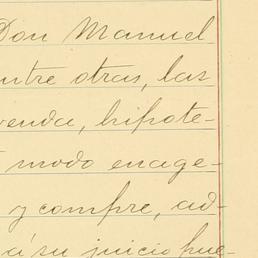 Don Manuel
entre otras, las
venda, hipote-
modo enage-
y compre, ad-
á su juicio pue-